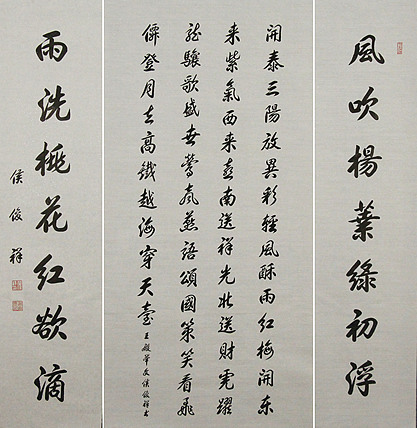 風吹楊葉綠初浮
開泰三陽放異彩輕風酥雨紅梅開東
来紫氣西来喜南送祥光北送財虎躍
龍驤歌盛世鶯声燕語頌國策笑看飛
僊登月去高鐵越海穿天臺
王殿華文侯俊祥书
雨洗桃花紅欲滴
侯俊祥